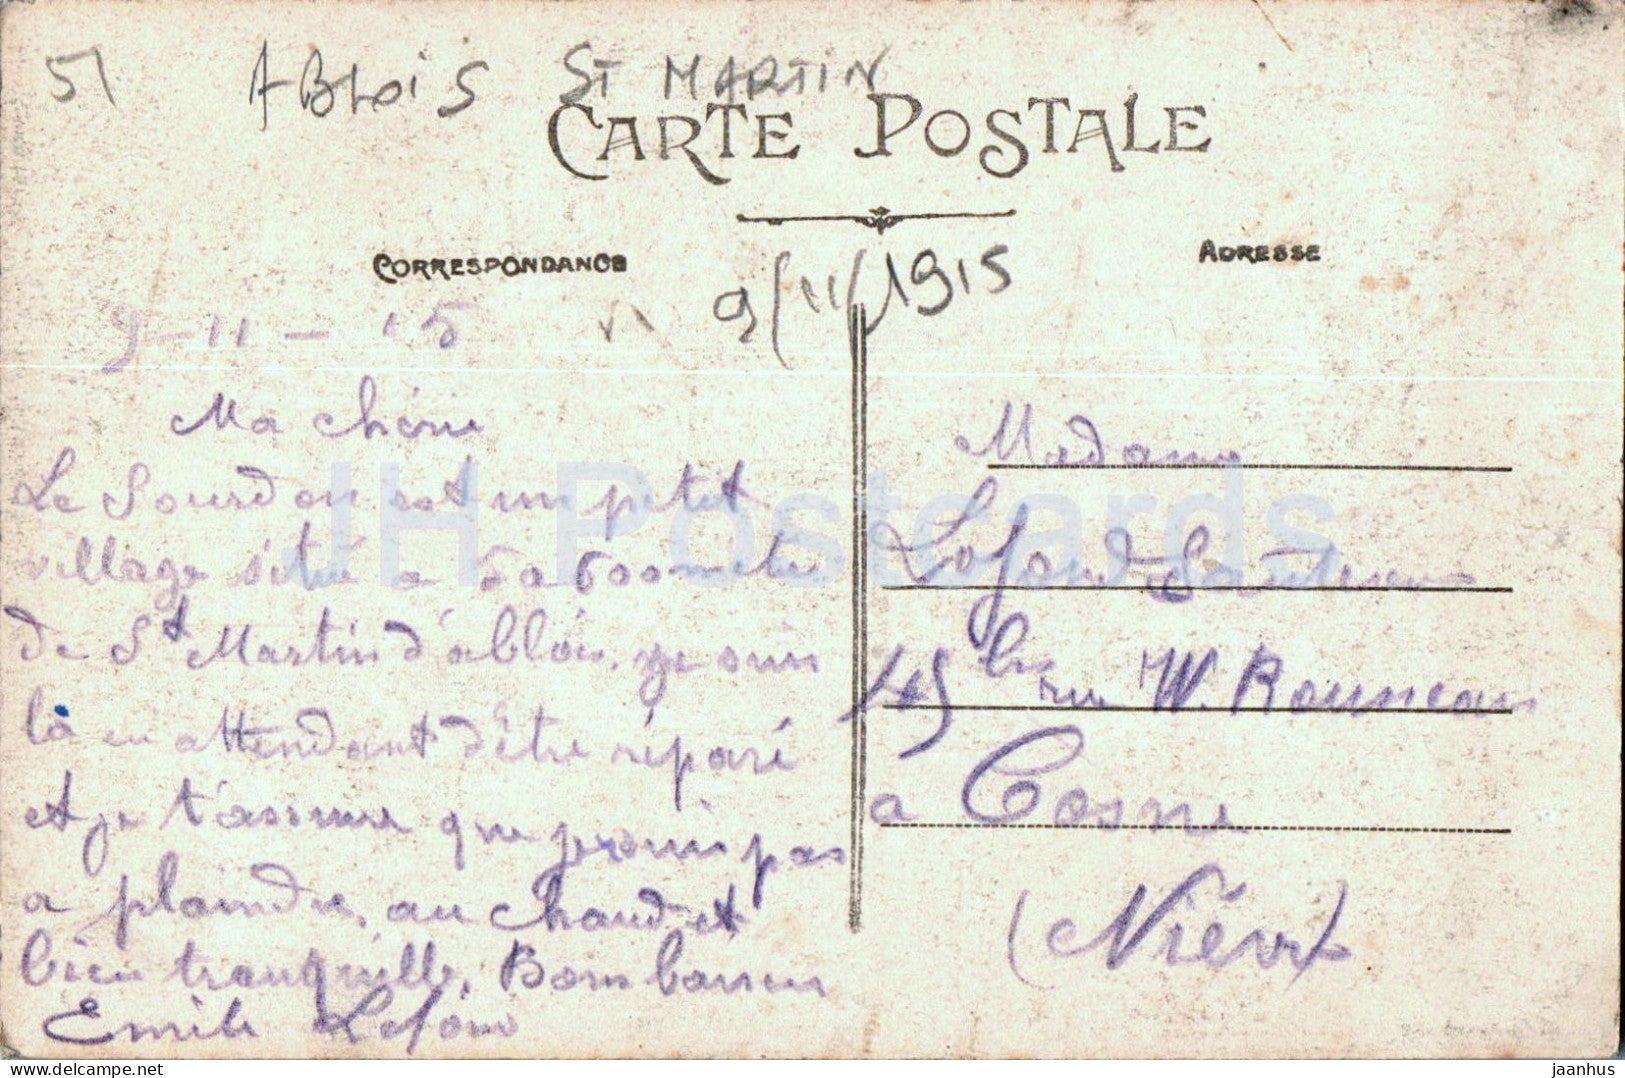 51 ABLOIS ST MARTIN
CARTE POSTALE
CORRESPONDANCE
ADRESSE
9/11/1915
9-11-15
Ma chérie
Le Sourdon est un petit
village situé a 5 a 600 metre
de St Martin d'ablois. je suis
là en attendant d'être réparé
et je t'assure que je suis pas
a plaindre, au chaud et
bien tranquille. Bons baisers
Emile Lafond
Madame
Lafond
145 bis rue W. Rousseau
a Cosne
(Nièvre)
JH Postcards
delcampe.net
jaanhus